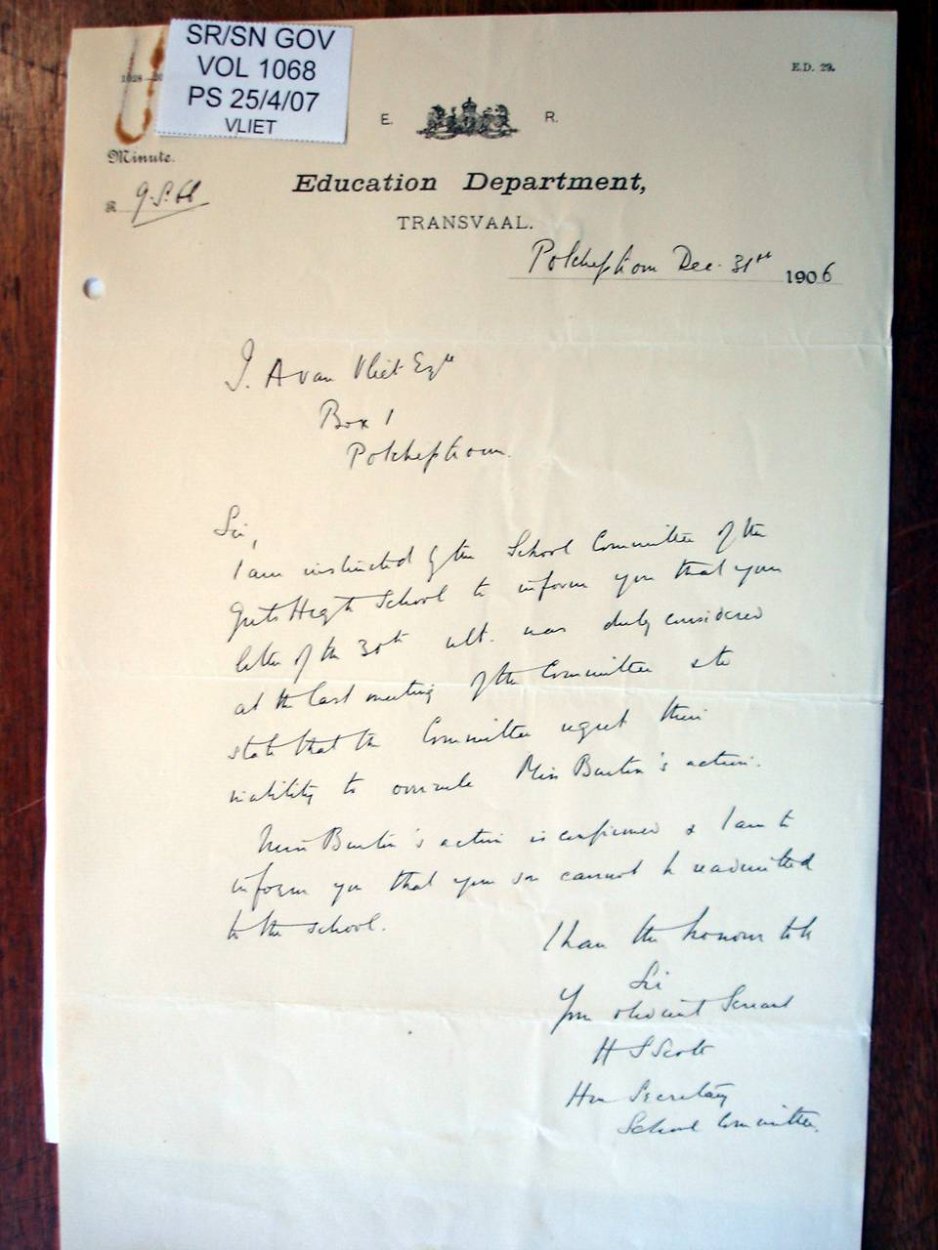 SR/SN GOV
VOL 1068
PS 25/4/07
VLIET
E.D. 29.
E. R.
Minute.
Education Department,
TRANSVAAL.
Potchefstroom Dec. 31st 1906
J. A van Vliet Esqre
Box 1
Potchefstroom.
Sir,
I am instructed by the School Committee of the
Girls High School to inform you that your
letter of the 30th ult. was duly considered
at the last meeting of the Committee & to
state that the Committee regret their
inability to overrule Miss Burtin's action.
Miss Burtin's action is confirmed & I am to
inform you that your son cannot be readmitted
to the school.
I have the honour to be
Sir
Your obedient Servant
H S Scott
Hon Secretary
School Committee.